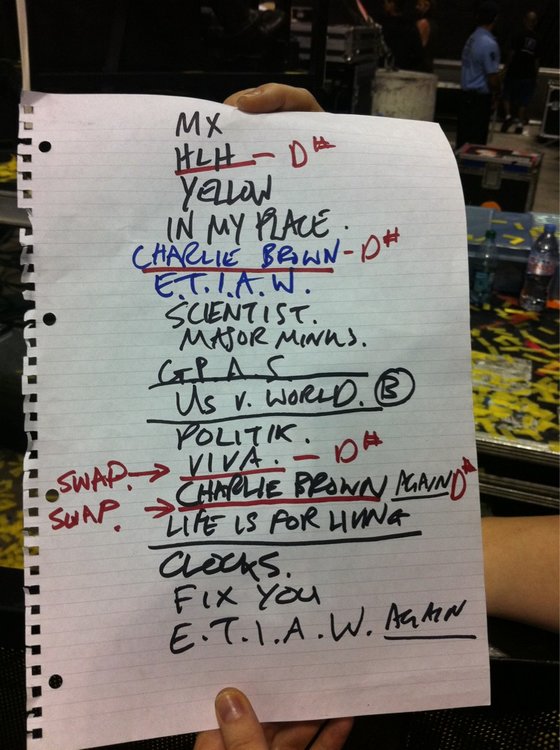 MX
HLH - D#
YELLOW
IN MY PLACE.
CHARLIE BROWN - D#
E.T.I.A.W.
SCIENTIST.
MAJOR MINUS.
G P A S
US V. WORLD. B
POLITIK.
SWAP. → VIVA. - D#
SWAP. → CHARLIE BROWN AGAIN D#
LIFE IS FOR LIVING
CLOCKS.
FIX YOU
E.T.I.A.W. AGAIN